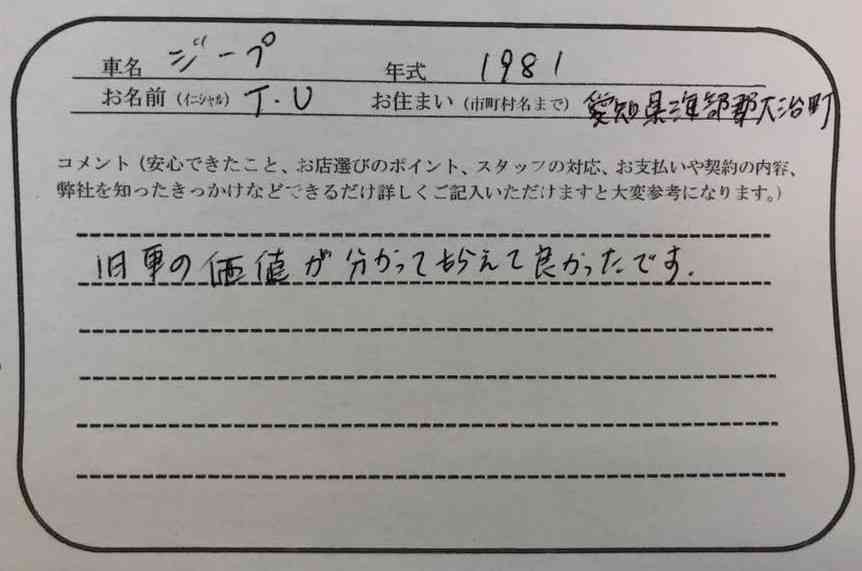 車名 ジープ 年式 1981
お名前（イニシャル） T.U お住まい（市町村名まで） 愛知県海部郡大治町
コメント（安心できたこと、お店選びのポイント、スタッフの対応、お支払いや契約の内容、
弊社を知ったきっかけなどできるだけ詳しくご記入いただけますと大変参考になります。）
旧車の価値が分かってもらえて良かったです.